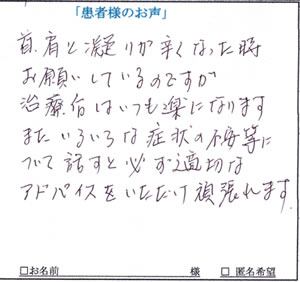 「患者様のお声」
首、肩と凝りが辛くなった時
お願いしているのですが
治療后はいつも楽になります
またいろいろな症状の不安等に
ついて話すと必ず適切な
アドバイスをいただけ頑張れます。
□お名前 様 □ 匿名希望